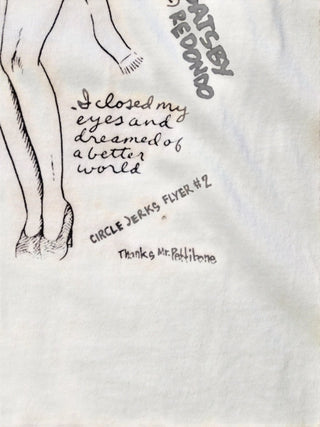 GATSBY
REDONDO
.I closed my
eyes and
dreamed of
a better
world
CIRCLE JERKS FLYER #2
Thanks Mr. Pettibone